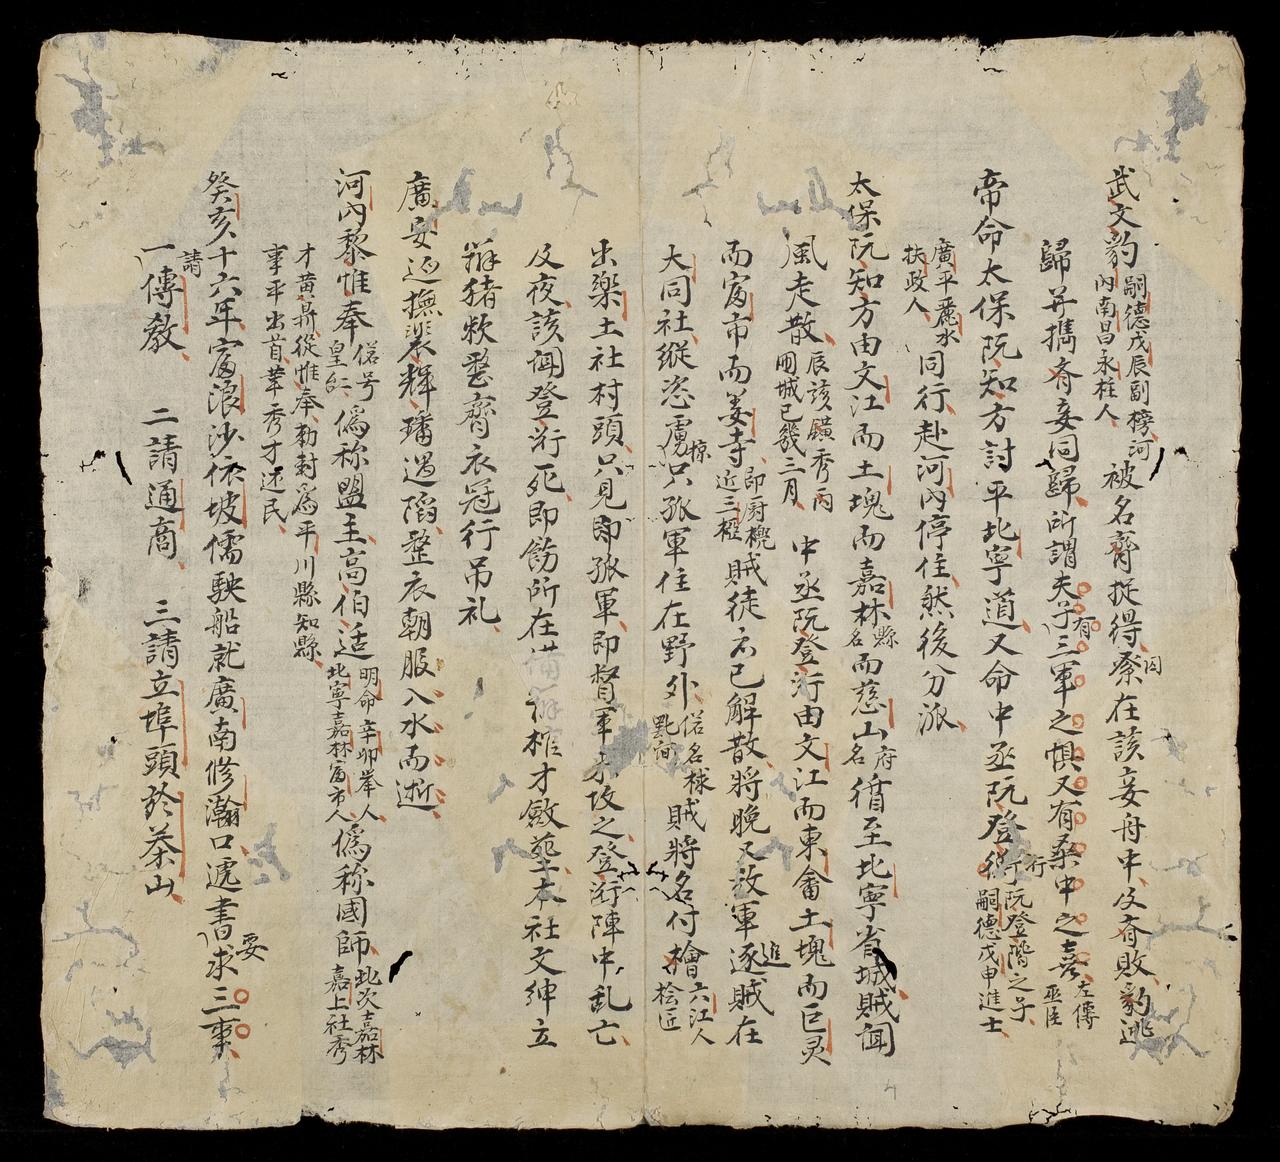 武文豹嗣德戊辰副榜河內南昌永柱人被名齊捉得禁囚在該妾舟中及齊敗豹逃
歸并擕齊妾同歸所謂夫子有三軍之惧又有桑中之喜左傳巫臣
帝命太保阮知方討平北寧道又命中丞阮登行阮登階之子嗣德戊申進士
廣平麗水扶政人同行赴河內停住然後分派
太保阮知方由文江而土塊而嘉林縣名而慈山府名循至北寧省城賊聞
風走散辰該鎮秀丙圍城已幾三月中丞阮登洐由文江而東畬土塊而巨灵
而富市而姜寺即厨槐近三椏賊徒亦已解散將晚又放軍進逐賊在
大同社縱恣虜掠只孤軍住在野外偌名梂賊將名付檜六江人桧匠
出樂土社村頭只見即孤軍即督軍來攻之登洐陣中乱亡
及夜該聞登洐死即飭所在備辦棺才斂苑在本社文紳立
辦猪粆整齊衣冠行吊礼
廣安巡撫裴輝璠遇陷整衣朝服入水而逝
河內黎惟奉偌号皇仁爲称盟主高伯适明命辛卯舉人北寧嘉林富市人爲称國師此次嘉林嘉上社秀
才黄鼎從惟奉勅封爲平川縣知縣事平出首革秀才还民
癸亥十六年富浪沙依坡儒駛船就廣南修瀚口遞書要求三事
一請傳教 二請通商 三請立埠頭於茶山